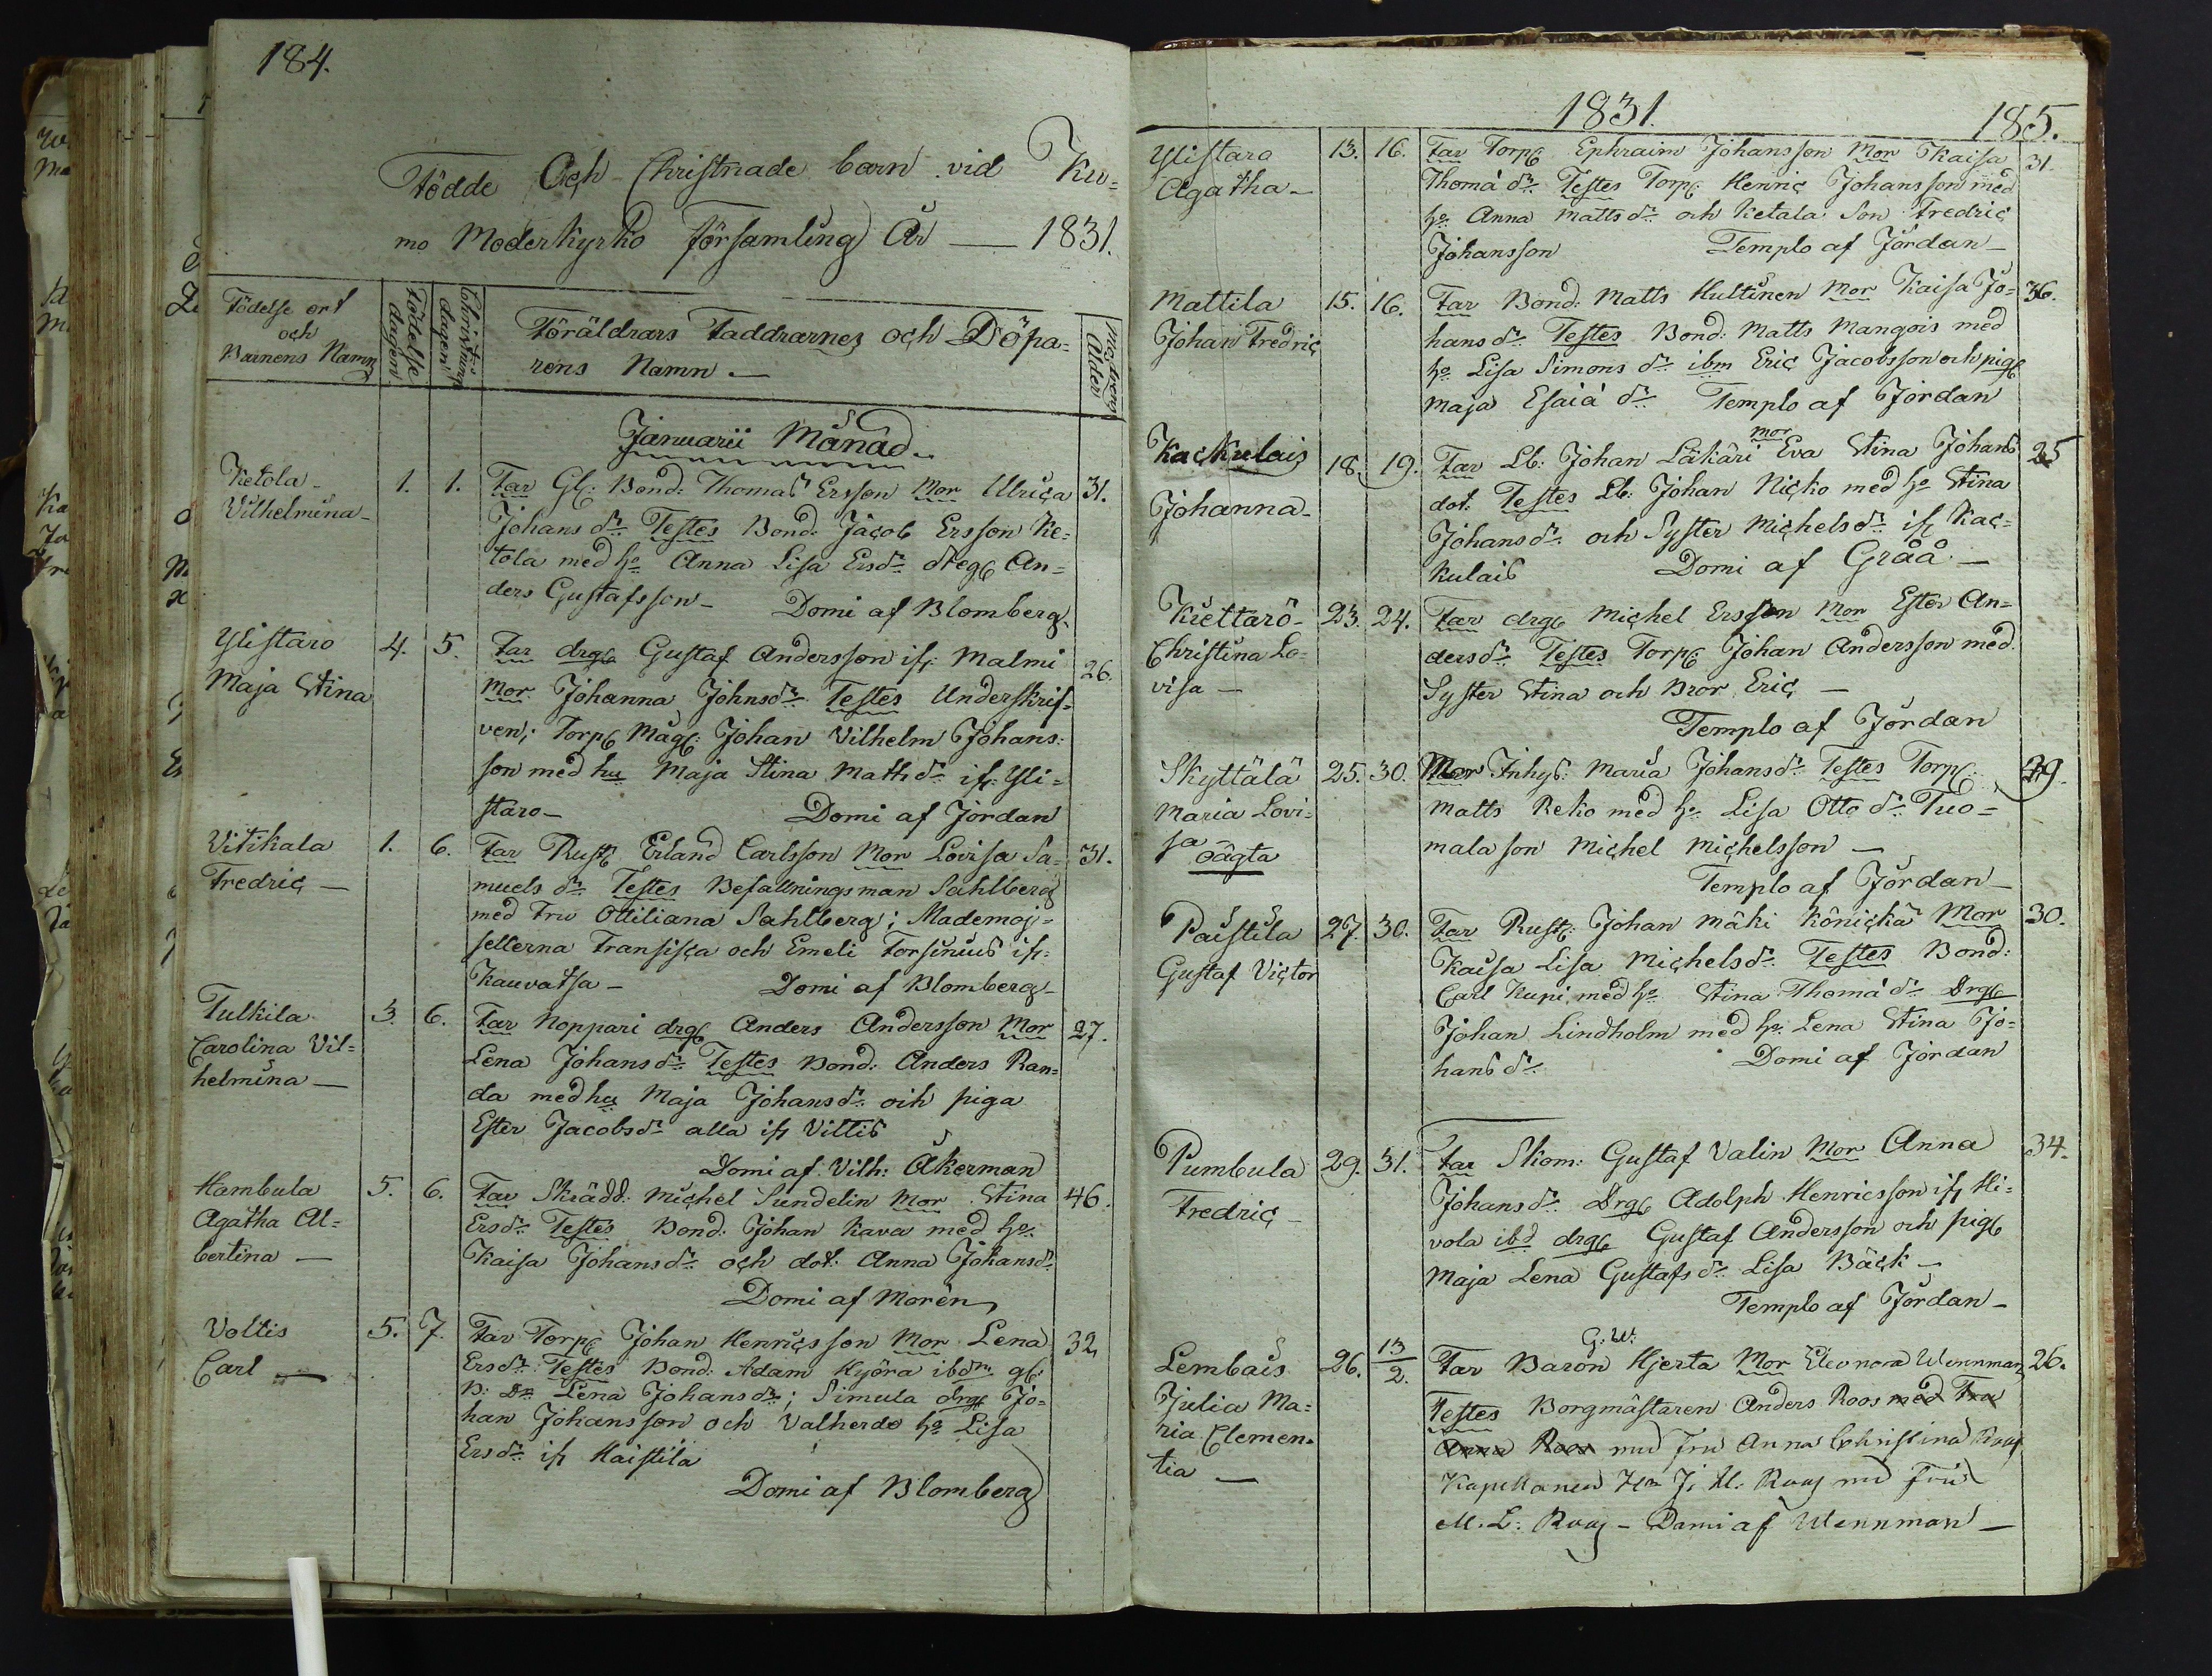 184.
Födde Och Christnade barn vid Ku=
mo Moderkyrko Församling År — 1831.
Födelse ort
och
Barnens Namn
Födelse
dagen
Christnings
dagen
Föräldrars Faddrarnes och Döpa=
rens Namn. —
Modrens
Ålder
Januarii Månad.
Ketola
Vilhelmina
1. 1. Far Gl: Bond: Thomas Ersson Mor Ulrica 31.
Johans dr Testes Bond. Jacob Ersson Ke=
tola med ho Anna Lisa Ersdr dreg An=
ders Gustafsson — Domi af Blomberg
Ylistaro
Maja Stina
4. 5. Far drg Gustaf Andersson ifr Malmi 26.
Mor Johanna Johnsdr Testes Underskrif=
ven; Torp Måg: Johan Vilhelm Johans:
son med hu Maja Stina Matts dr ifr Yli=
staro — Domi af Jordan
Vitikala
Fredric —
1. 6. Far Rust Erland Carlsson Mor Lovisa Sa= 31.
muels dr Testes Befallningsman Sahlberg
med Fru Ottiliana Sahlberg; Mademoj=
sellerna Fransisca och Emeli Forsinius ifr
Kauvatsa — Domi af Blomberg
Tulkila
Carolina Vil=
helmina —
3. 6. Far Noppari drg Anders Andersson Mor 27.
Lena Johans dr Testes Bond: Anders Ran=
da med hu Maja Johansdr och piga
Ester Jacobsdr alla ifr Villis
Domi af Vilh: Åkerman
Hambula
Agatha Al=
bertina —
5. 6. Far Skrädd. Michel Sundelin Mor Stina 46.
Ersdr Testes Bond. Johan Kava med ho
Kaisa Johansdr och dot: Anna Johansdr
Domi af Morén
Voltis
Carl —
5. 7. Far Torp Johan Henricsson Mor Lena 32
Ersdr: Testes Bond: Adam Kjöra ibdm gl:
B: Dr Lena Johansdr; Simula drg Jo=
han Johansson och Valherdo ho Lisa
Ersdr ifr Haistila
Domi af Blomberg
1831. 185.
Ylistaro
Agatha —
13. 16. Far Torp Ephraim Johansson Mor Kaisa 31.
Thomæ dr Testes Torp: Henric Johansson med
ho Anna Matts dr och Ketala Son Fredric
Johansson Templo af Jordan —
Mattila
Johan Fredric
15. 16. Far Bond: Matts Hultinen Mor Kaisa Jo= 36.
hans dr Testes Bond: Matts Mangois med
ho Lisa Simons dr ibm Eric Jacobsson och pig
Maja Esaiæ dr Templo af Jordan
Kackulais
Johanna —
18. 19. Far Lb: Johan Läkäri Mor Eva Stina Johans 25
dot. Testes Lb: Johan Nicko med ho Stina
Johansdr och Syster Michelsdr ifr Kac=
kulais Domi af Gråå —
Kiettarö —
Christina Lo=
visa —
23. 24. Far drg Michel Ersson Mor Ester An=
dersdr Testes Torp Johan Andersson med
Syster Stina och Bror Eric —
Templo af Jordan
Skyttälä
Maria Lovi=
sa
oägta
25. 30. Mor Inhys: Maria Johansdr Testes Torp: 29.
Matts Reko med ho Lisa Otto dr Tuo=
mala son Michel Michelsson —
Templo af Jordan —
Paistila
Gustaf Victor
27. 30. Far Rust: Johan Mäki Könickä Mor 30.
Kaisa Lisa Michelsdr Testes Bond:
Carl Kupi med ho Stina Thomæ dr Drg
Johan Lindholm med ho Lena Stina Jo=
hans dr Domi af Jordan
Pumbula
Fredric —
29. 31. Far Skom: Gustaf Valin Mor Anna 34.
Johansdr Drg Adolph Henricsson ifr Hi=
vola ibd drg Gustaf Andersson och pig
Maja Lena Gustafs dr Lisa Bäck —
Templo af Jordan —
Lembais
Julia Ma=
ria Clemen=
tia —
26. 13/2. Far Baron Hjerta Mor G: W: Eleonora Wennman 26.
Testes Borgmästaren Anders Roos med Fru
Anna Roos med Fru Anna Christina Roos
Kapellanen Hr J. H: Roos med Fru
M. L: Roos — Domi af Wennman —